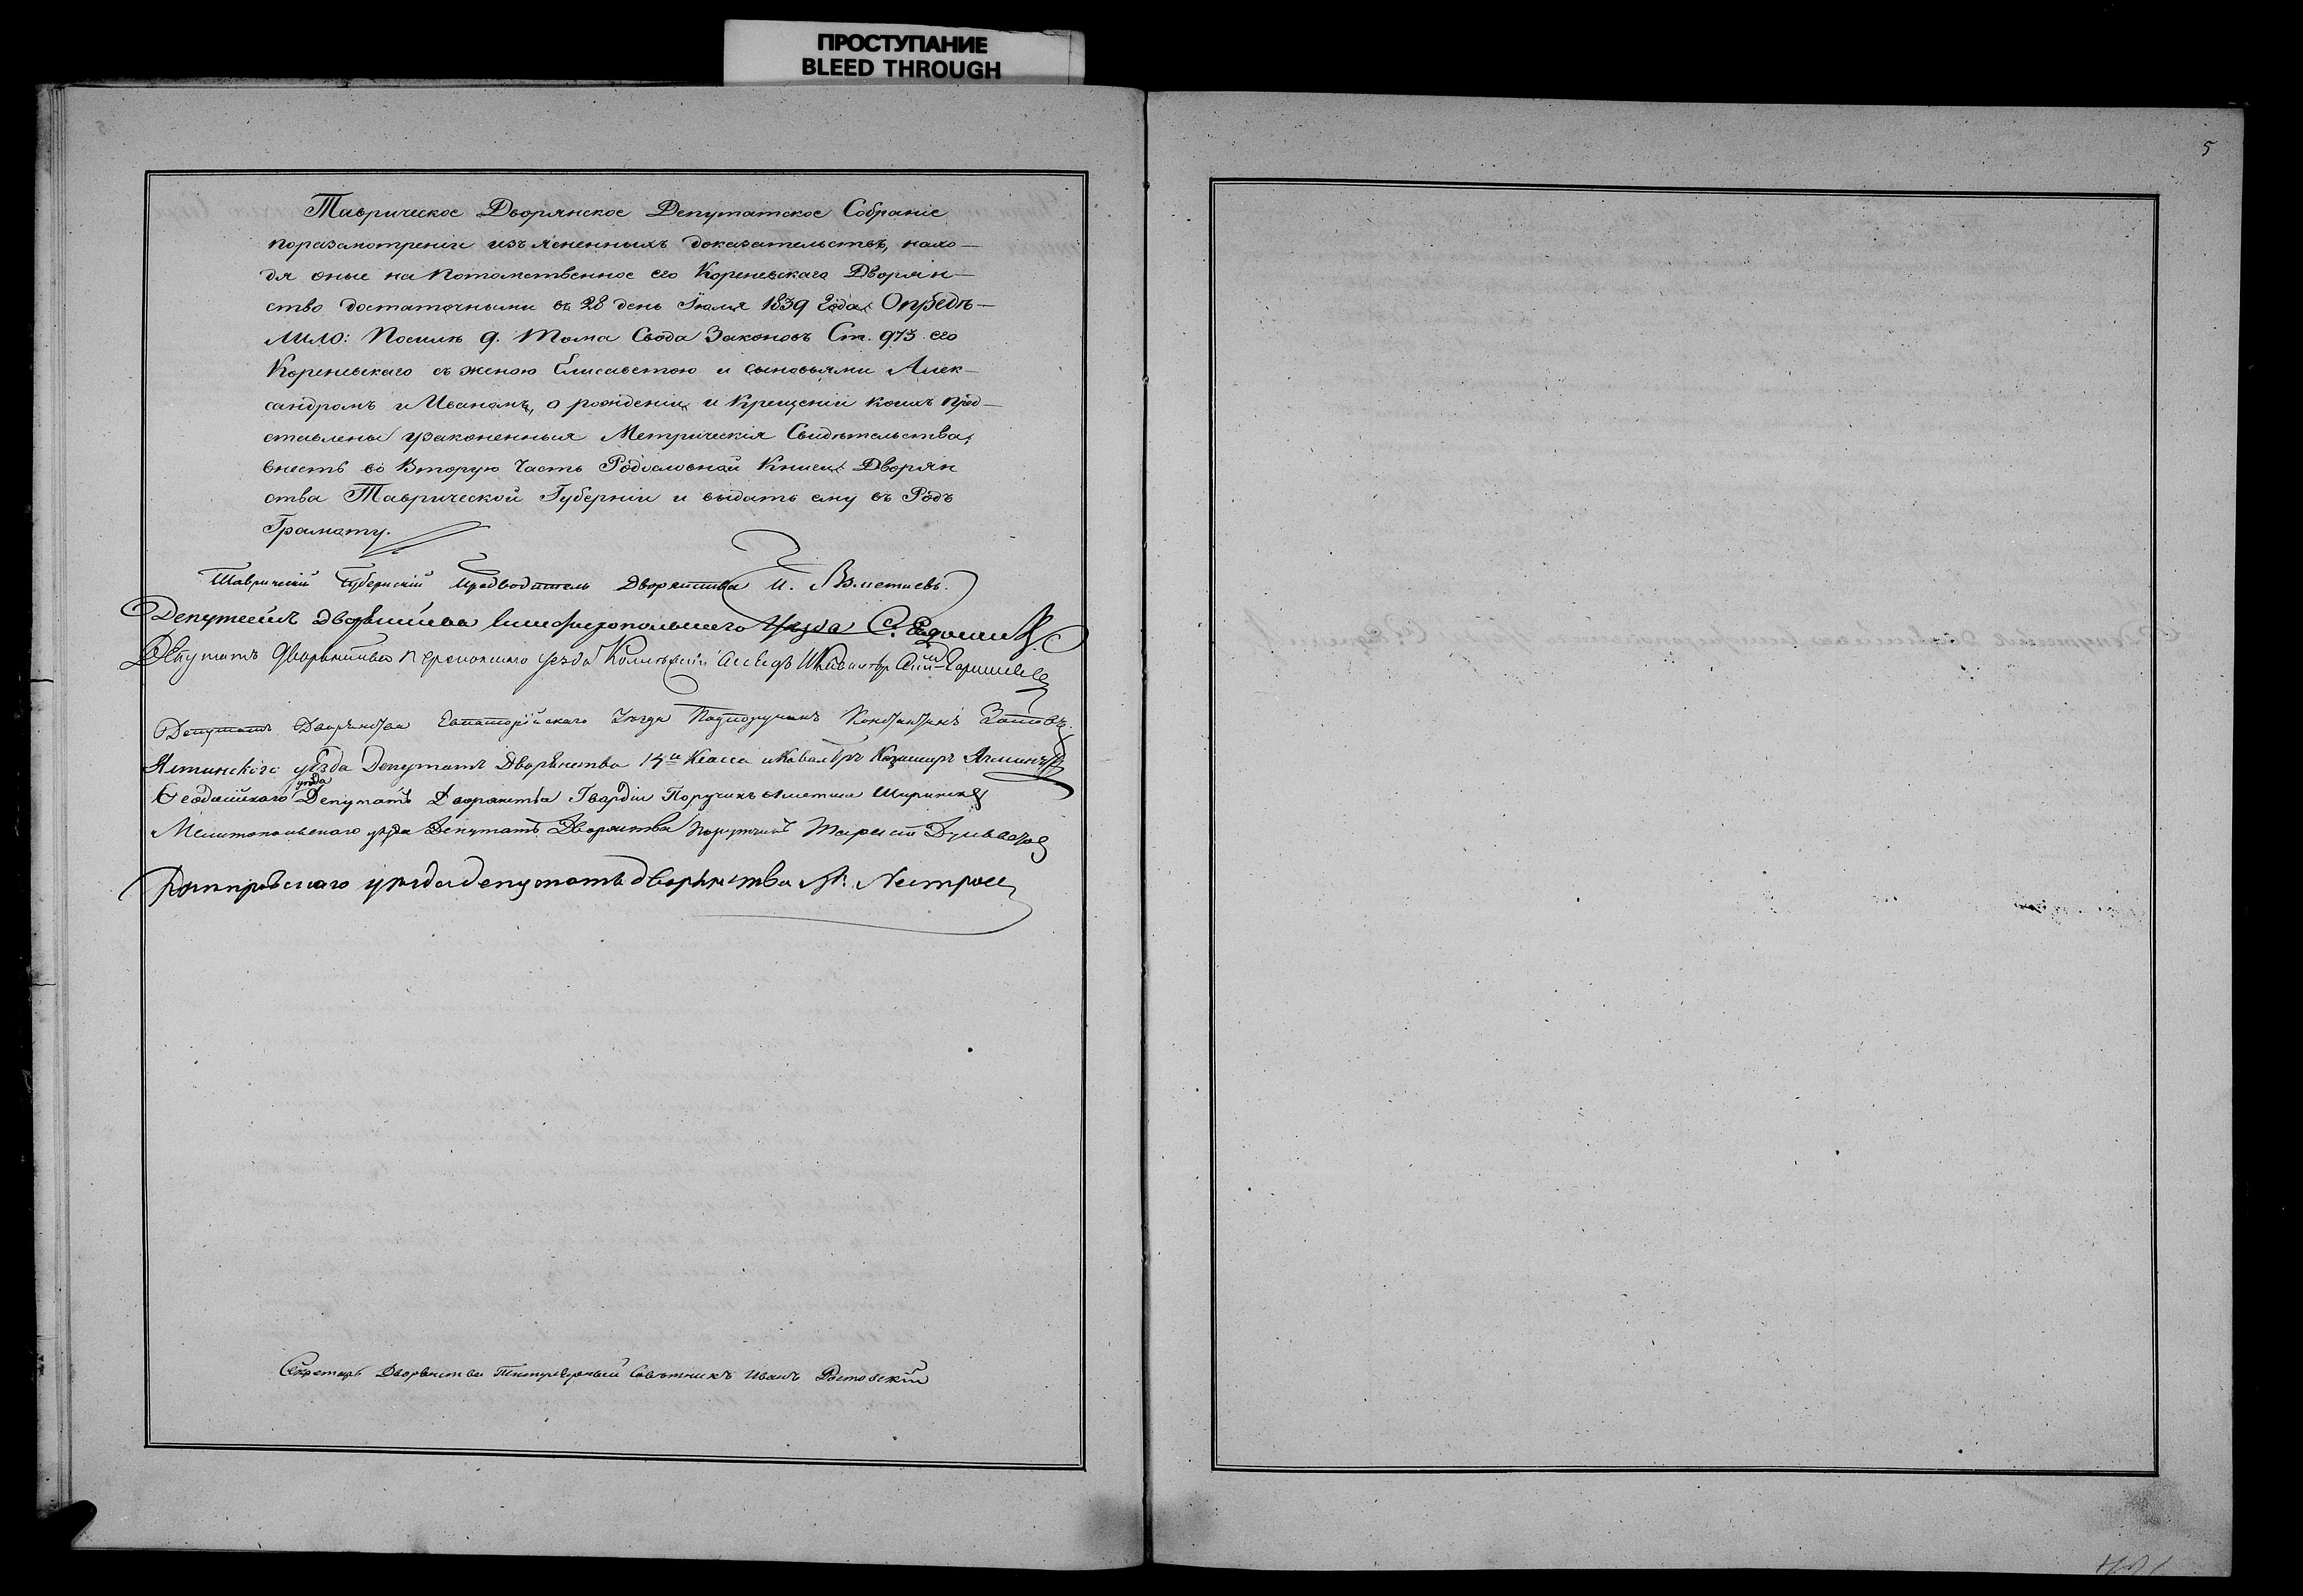 ПРОСТУПАНИЕ
BLEED THROUGH
5
Таврическое Дворянское Депутатское Собраніе
поразсмотреніи изъясненныхъ доказательствъ, нахо-
дя оные на Потомственное его Кореневскаго Дворян-
ство достаточными въ 28 день Іюля 1839 года Опредѣ-
лило: Посилѣ 9. Тома Свода Законовъ Ст. 973 его
Кореневскаго съ женою Елисаветою и сыновьями Алек-
сандромъ и Иваномъ, о рожденіи и крещеніи коихъ пред-
ставлены узаконенныя Метрическія Свидѣтельства,
внесть во Вторую Часть Родословной Книги Дворян
ства Таврической Губерніи и выдать ему въ Родъ
Грамоту.
Таврическій Губернскій Предводитель Дворянства
Депутатъ дворянства Симферопольскаго Уѣзда С.
Депутатъ Дворянства Перекопскаго уезда
Депутатъ Дворянства Евпаторійскаго Уѣзда Подпоручикъ Константинъ Зотовъ
Ялтинскаго уѣзда Депутатъ Дворянства 14го Класса и Кавалеръ
Ѳеодосійскаго уѣзда Депутатъ Дворянства Гвардіи Поручикъ Ширинскій
Мелитопольскаго уѣзда Депутатъ Дворянства Поручикъ
Днѣпровскаго уѣзда депутатъ дворянства
Секретарь Дворянства Титулярный Совѣтникъ Иванъ Ростовскій